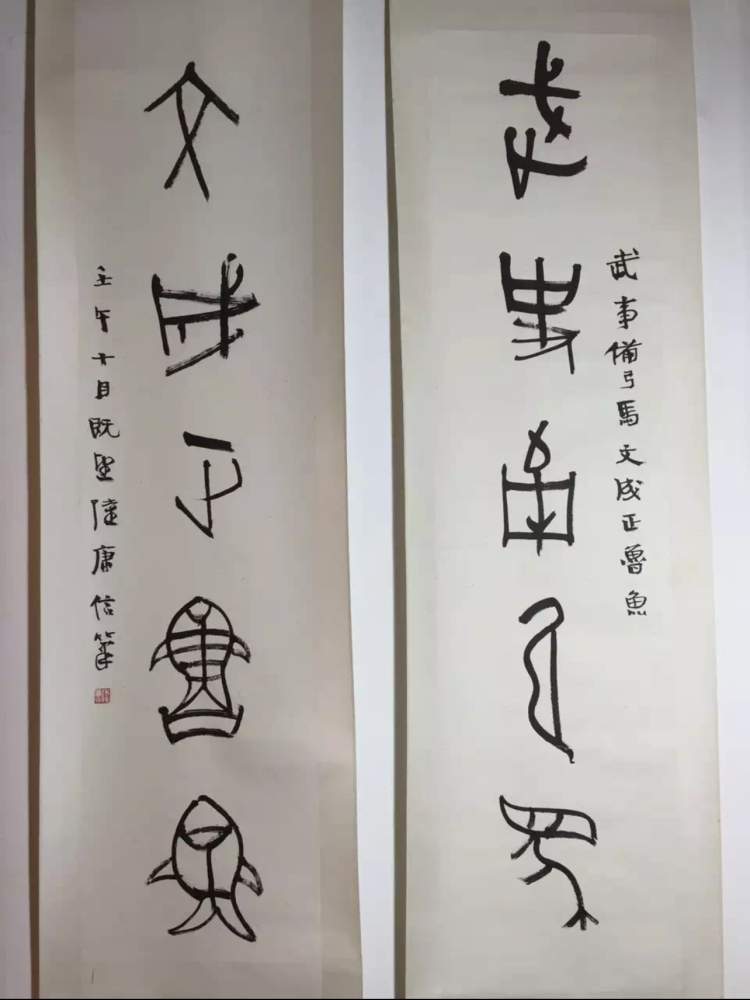 武事備弓馬文成正魯魚
武事備弓馬
文成正魯魚
壬午十月既望陸康信筆